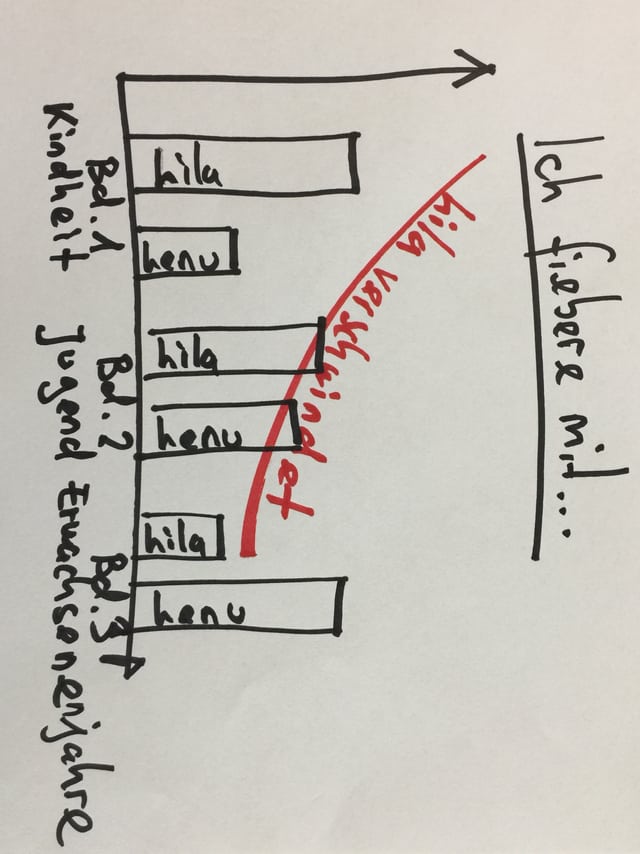 Ich fiebere mit...
hila verschwindet
hila
henu
hila
henu
hila
henu
Bd. 1
Bd. 2
Bd. 3
Kindheit
Jugend
Erwachsenenjahre